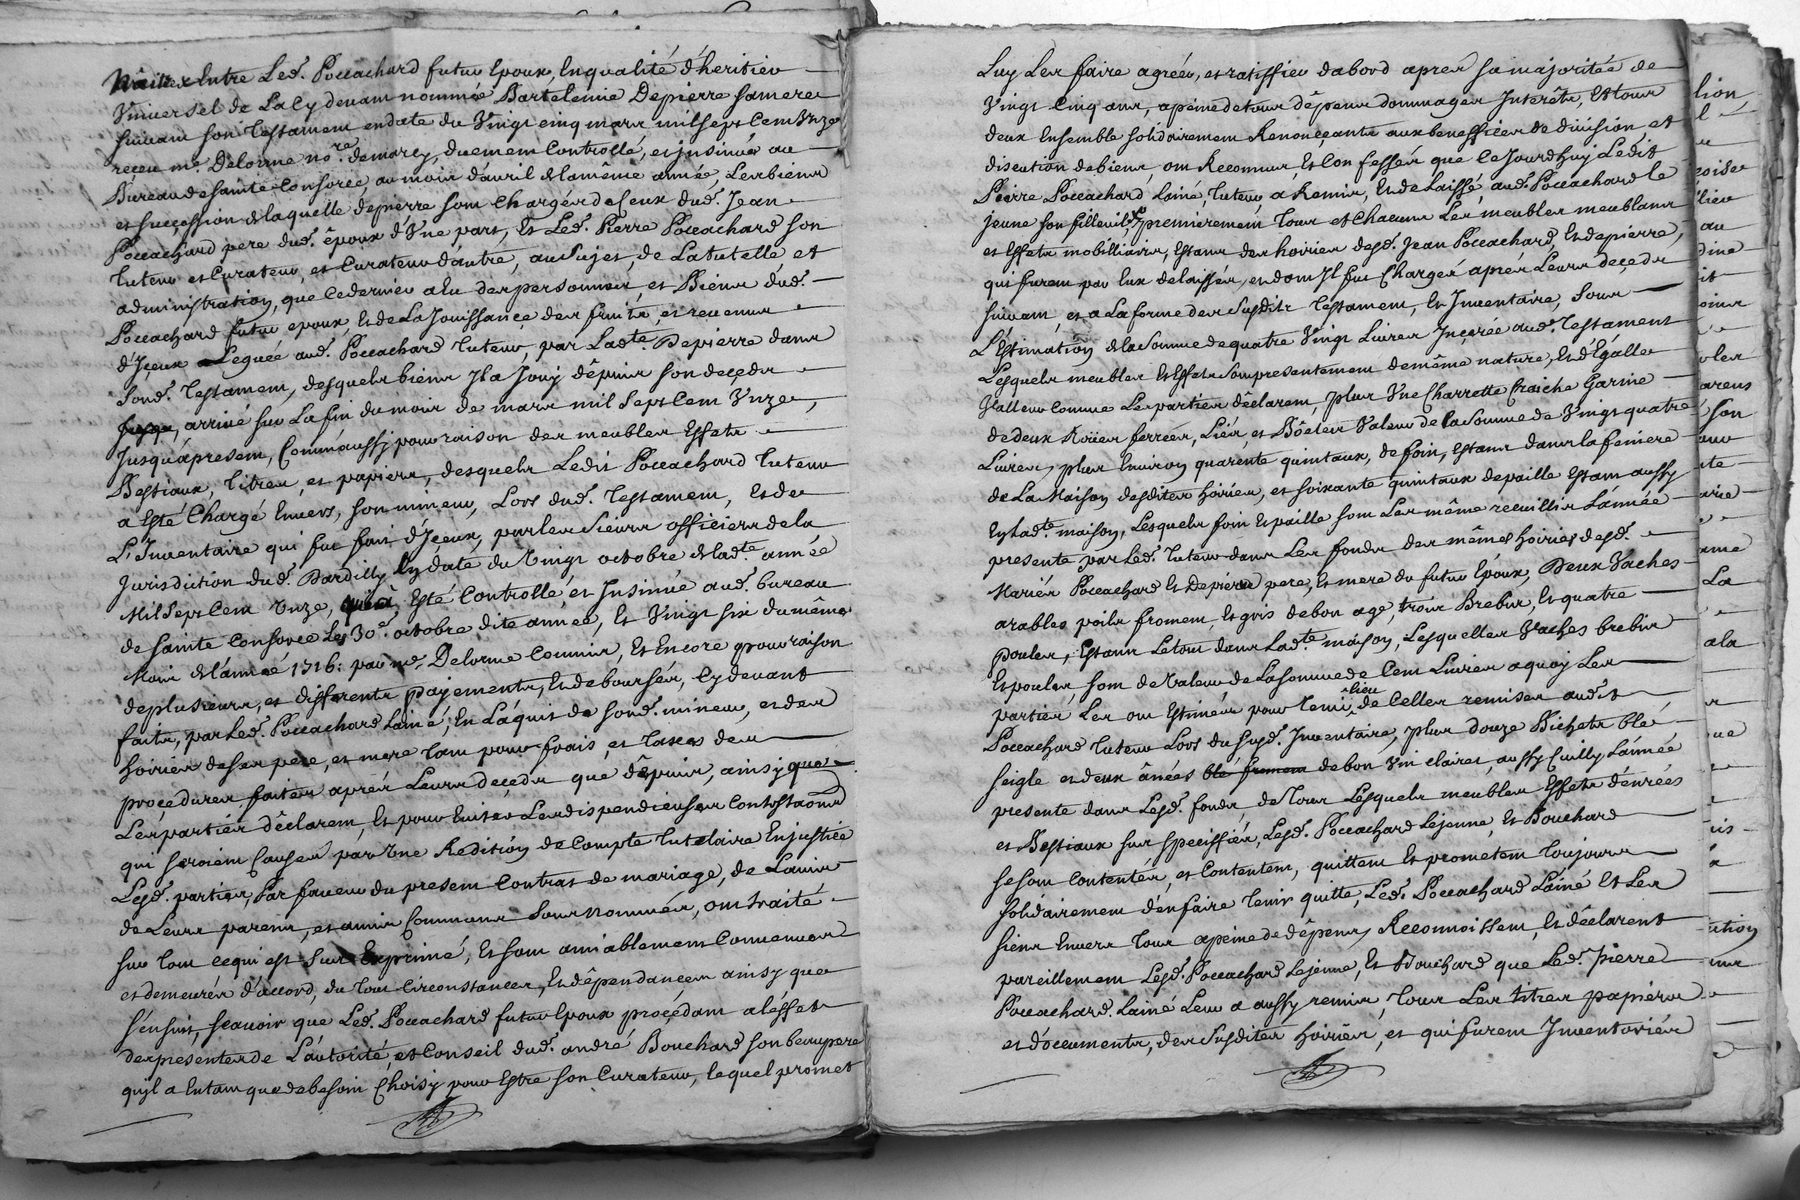 Naitre Entre Led. Poccachard futur Epoux, Enqualité d'heritier
Vniversel de La Cy devant nommée Bartelemie Depierre samere
suivant son Testament endate du Vingt cinq mars mil sept Cent Vnze
receu me. Delorme nore. demarcy, duement Controllé, et jnsinué au
Bureau de sainte Consorce, au mois d'avril de la même année, Les biens
et succession de laquelle depierre sont Chargés de Ceux dud. Jean
Poccachard pere dud. époux d'Vne part, Et Led. Pierre Poccachard son
tuteur et Curateur, et Curateur d'autre, au sujet, de La tutelle et
administration, que Ce dernier a Eu des personnes, et Biens dud.
Poccachard futur epoux, Et de La Jouissance des fruits, et revenus
d'Jceux Leguée aud. Poccachard tuteur, par Ladte. Depierre dans
sond. Testament, desquels biens Jl a Jouy dêpuis son decedz
arrivé sur La fin du mois de mars mil sept Cent Vnze,
Jusquápresent, Comm'aussy pour raison des meubles Effets
Bestiaux, titres, et papiers, desquels Ledit Poccachard tuteur
a Esté Chargé Envers, son mineur, Lors dud. Testament, Et de
L'Jnventaire qui fut fait d'Jceux, par les sieurs officiers de la
Jurisdiction dud. Dardilly En date du Vingt octobre de ladte. année
Mil sept Cent Vnze, Esté Controllé, et Jnsinué aud. bureau
de sainte Consorce Les 30e. octobre dite année, Et Vingt six du même
Mois de l'année 1716: par me. Delorme Commis, Et Encore pour raison
de plusieurs, et differents payements, Et deboursés, Cy devant
faits, par Led. Poccachard Lainé, En L'áquit de sond. mineur, et des
hoiries de ses pere, et mere tant pour frais, et taxes de
procedures faites aprés Leurs decedz que dêpuis, ainsy que
Les parties dêclarent, Et pour Eviter Les dispendieuses Contestaons
qui seroient Causés par Vne Redition de Compte tutelaire En justice
Lesd. parties, Par faveur du present Contrat de mariage, de L'avis
de Leurs parents, et amis Communs sousnommés, ont traité
sur tout ce qui est sus Exprimé, Et sont amiablement Convenues
et demeurés d'accord, du tout Circonstances, Et dêpendances ainsy que
s'ensuit, scavoir que Led. Poccachard futur Epoux procedant a l'effet
des presentes de L'autorité, et Conseil dud. andré Bouchard son beaupere
quj'l a Entant que de besoin Choisy pour Estre son Curateur, lequel promet
Luy Les faire agréer, et ratiffier dabord aprés sa majoritée de
Vingt Cinq ans, apeine de tous dêpens dommages Jnterêts, Et tous
deux Ensemble solidairement Renonçants aux benefficies de division, et
discution de biens, ont Reconnus, Et Confessés que Ce Jourdhuy Ledit
Pierre Poccachard Lainé, tuteur a Remis, Et de Laissé, aud. Poccachard le
jeune son filleuil, premierement tous et Chacuns Les meubles meublans
et Effets mobilliaires, Estants des hoiries desd. Jean Poccachard, Et depierre,
qui furent par Eux delaissés, et dont Jl fut Chargé aprés Leurs decedz
suivant, et a La forme des susdits Testament, Et Jnventaire, sous
L'Estimation de la somme de quatre Vingt Livres Jnserée aud. Testament
Lesquels meubles Et Effets sont presentement de même nature, Et d'Egalle
Valleur Comme Les parties dêclarent, plus Vne Charrette fraiche Garnie
de deux Roües ferrées, Liés, et Bôetes Valeur de la somme de Vingt quatre
Livres, plus Environ quarente quintaux, de foin, Estant dans la feniere
de La Maison desdites hoiries, et soixante quintaux de paille Estant aussy
En Ladte. maison, Lesquels foin Et paille sont Les même recuillis L'année
presente par Led. tuteur dans Les fonds des mêmes hoiries desd.
Mariés Poccachard Et Depierre pere, Et mere du futur Epoux, Deux Vaches
arables poils froment, Et gris de bon age, trois Brebis, Et quatre
poules, Estants Letout dans Ladte. maison, Lesquelles Vaches brebis
Et poules, sont de Valeur de La somme de Cent Livres a quoy Les
parties Les ont Estimés pour tenir lieu de Celles remises aud.
Poccachard tuteur Lors du susd. Jnventaire, plus douze Bichets blé
seigle et deux ânées blé froment de bon Vin clairet, aussy Cuilly L'année
presente dans Lesd. fonds, de tous Lesquels meubles Effets d'enrées
et Bestiaux sus speciffiés, Lesd. Poccachard Lejeune, Et Bouchard
se sont Contentés, et Contentent, quittent Et prometent toujours
solidairement d'en faire tenir quitte, Led. Poccachard Lainé Et Les
siens Envers tous apeine de dêpens, Reconnoissent, Et dêclarent
pareillement Lesd. Poccachard Lejeune, Et Bouchard que Led. Pierre
Poccachard Lainé Leur a aussy remis, tous Les titres papiers
et documents, des susdites hoiries, et qui furent Jnventoriés